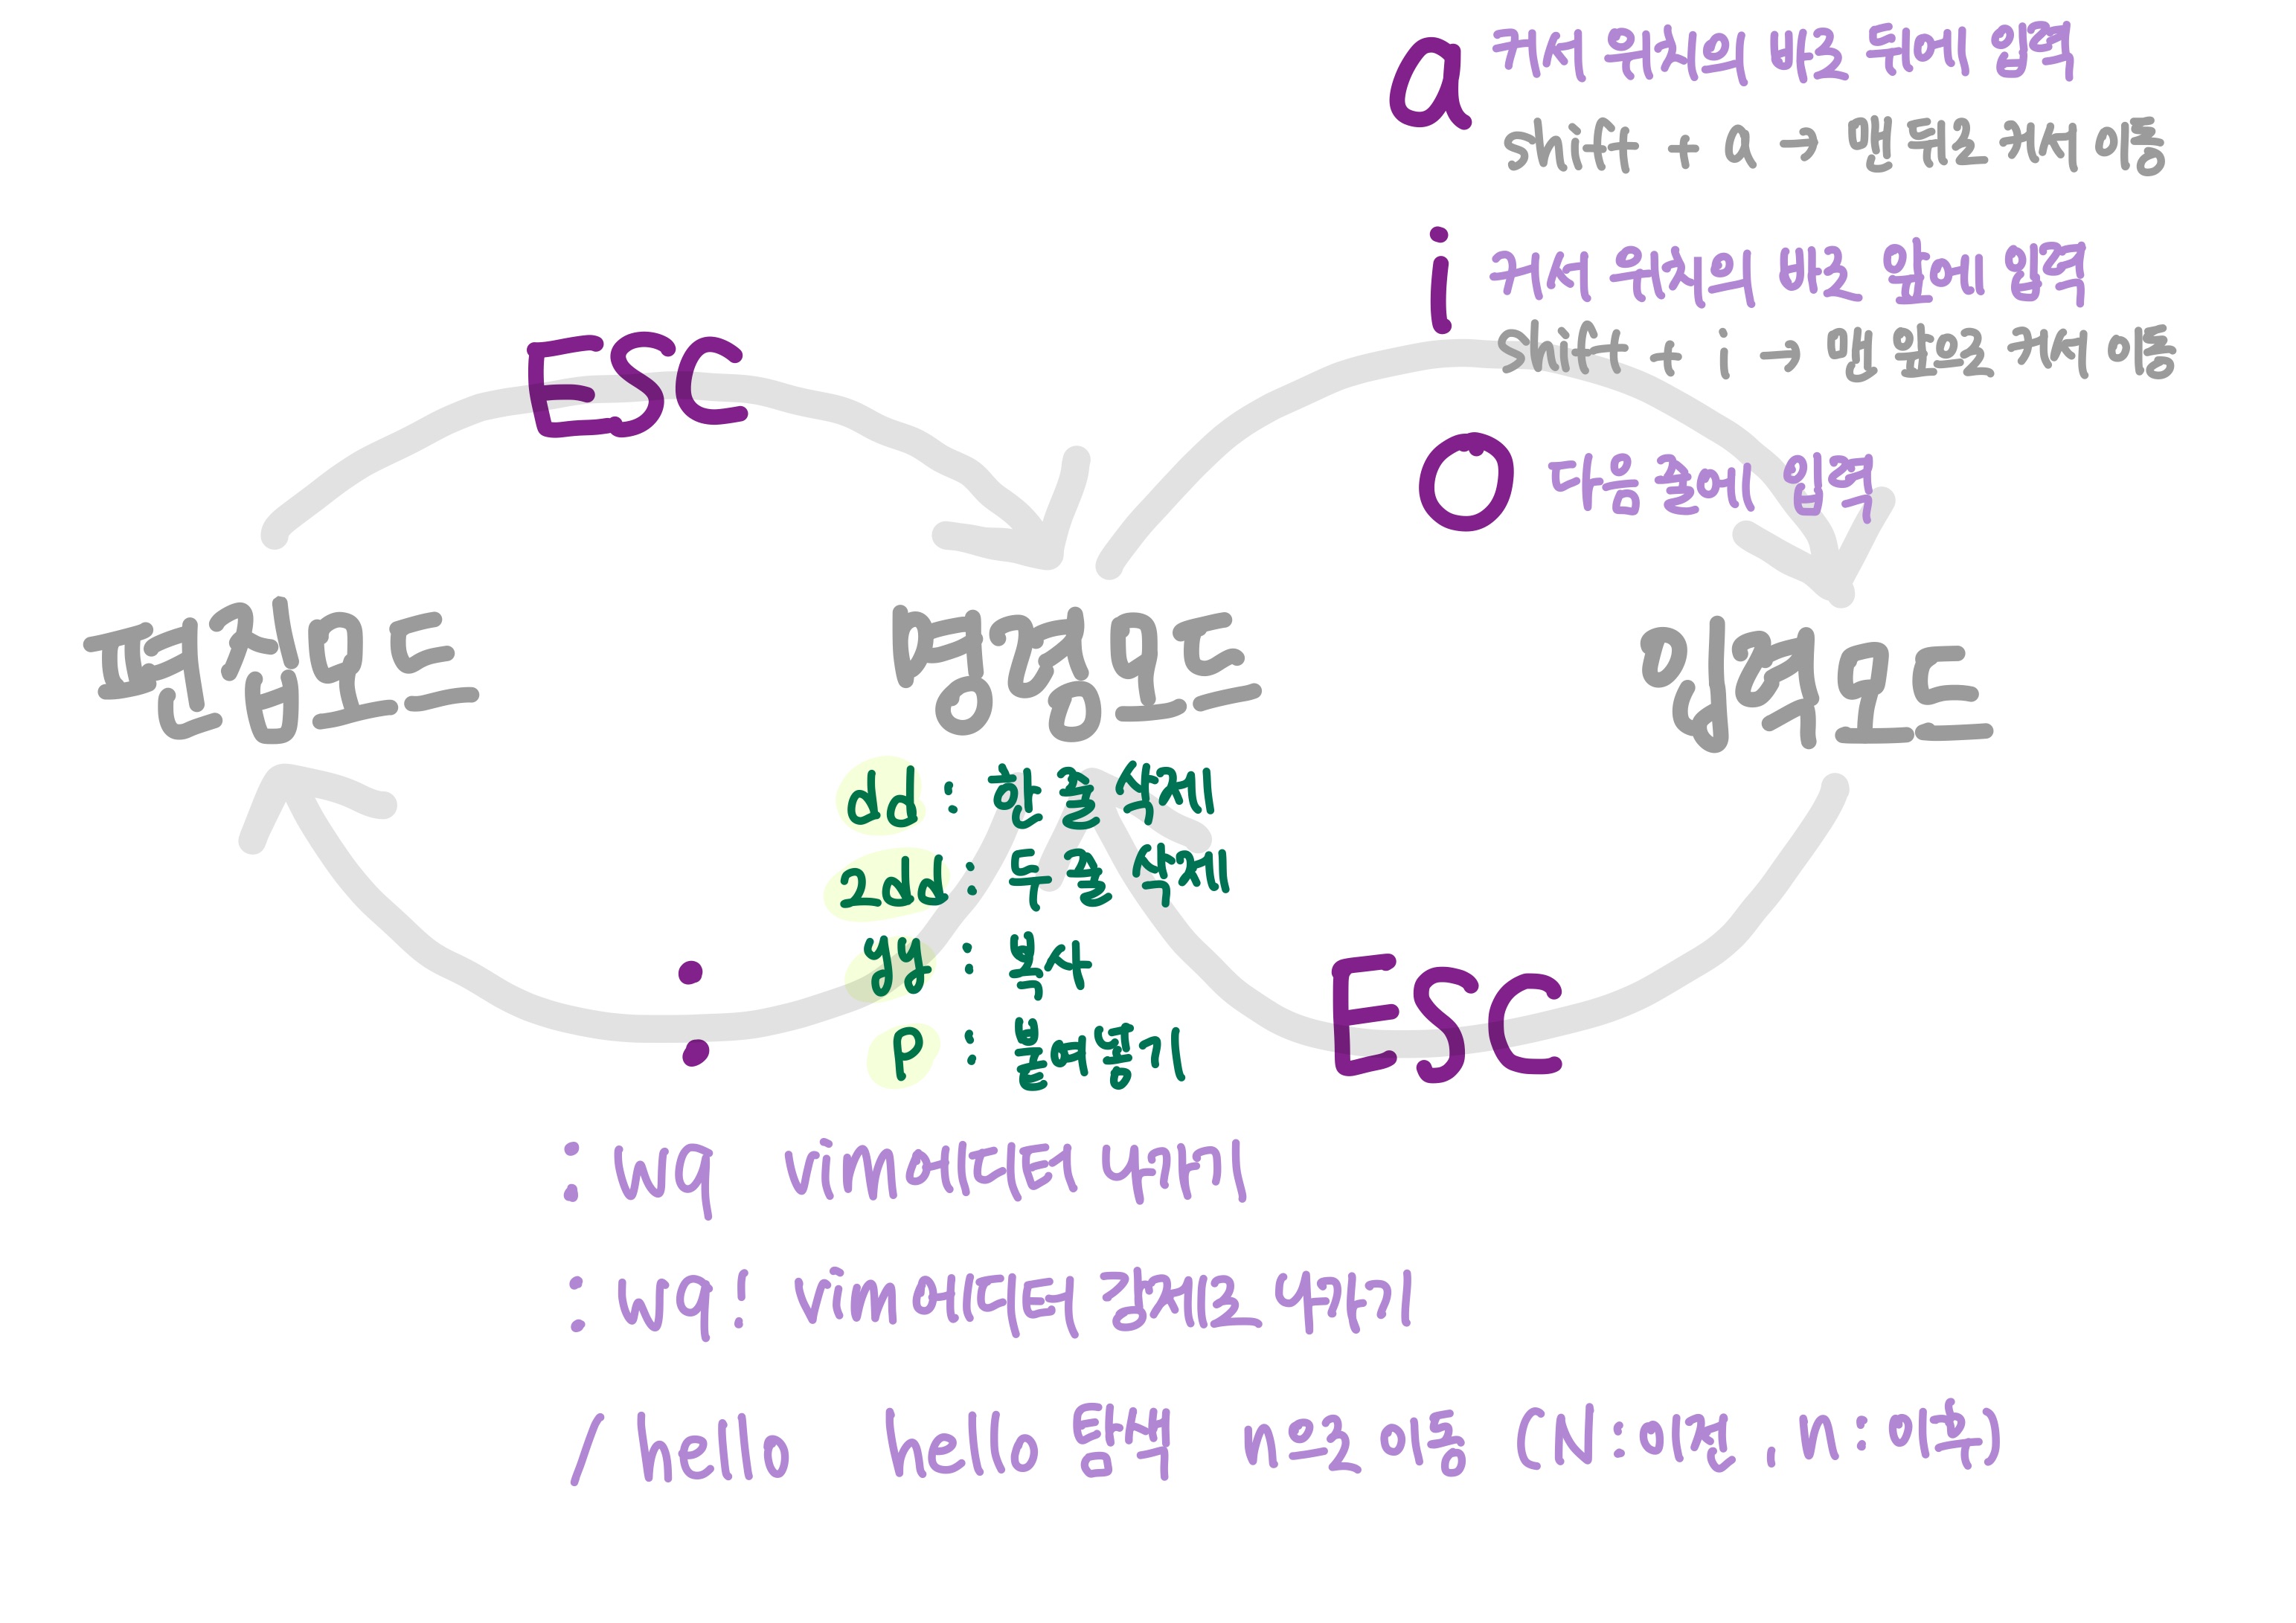 a 커서 위치의 바로 뒤에 입력
shift + a → 맨 뒤로 커서 이동
i 커서 위치의 바로 앞에 입력
shift + i → 맨 앞으로 커서 이동
ESC
O 다음 줄에 입력
편집모드 명령모드 입력모드
dd : 한 줄 삭제
2dd : 두 줄 삭제
yy : 복사
p : 붙여넣기
:
ESC
: wq vim에디터 나가기
: wq! vim에디터 강제로 나가기
/ hello hello 탐색 n으로 이동 (N:이전, n:이후)